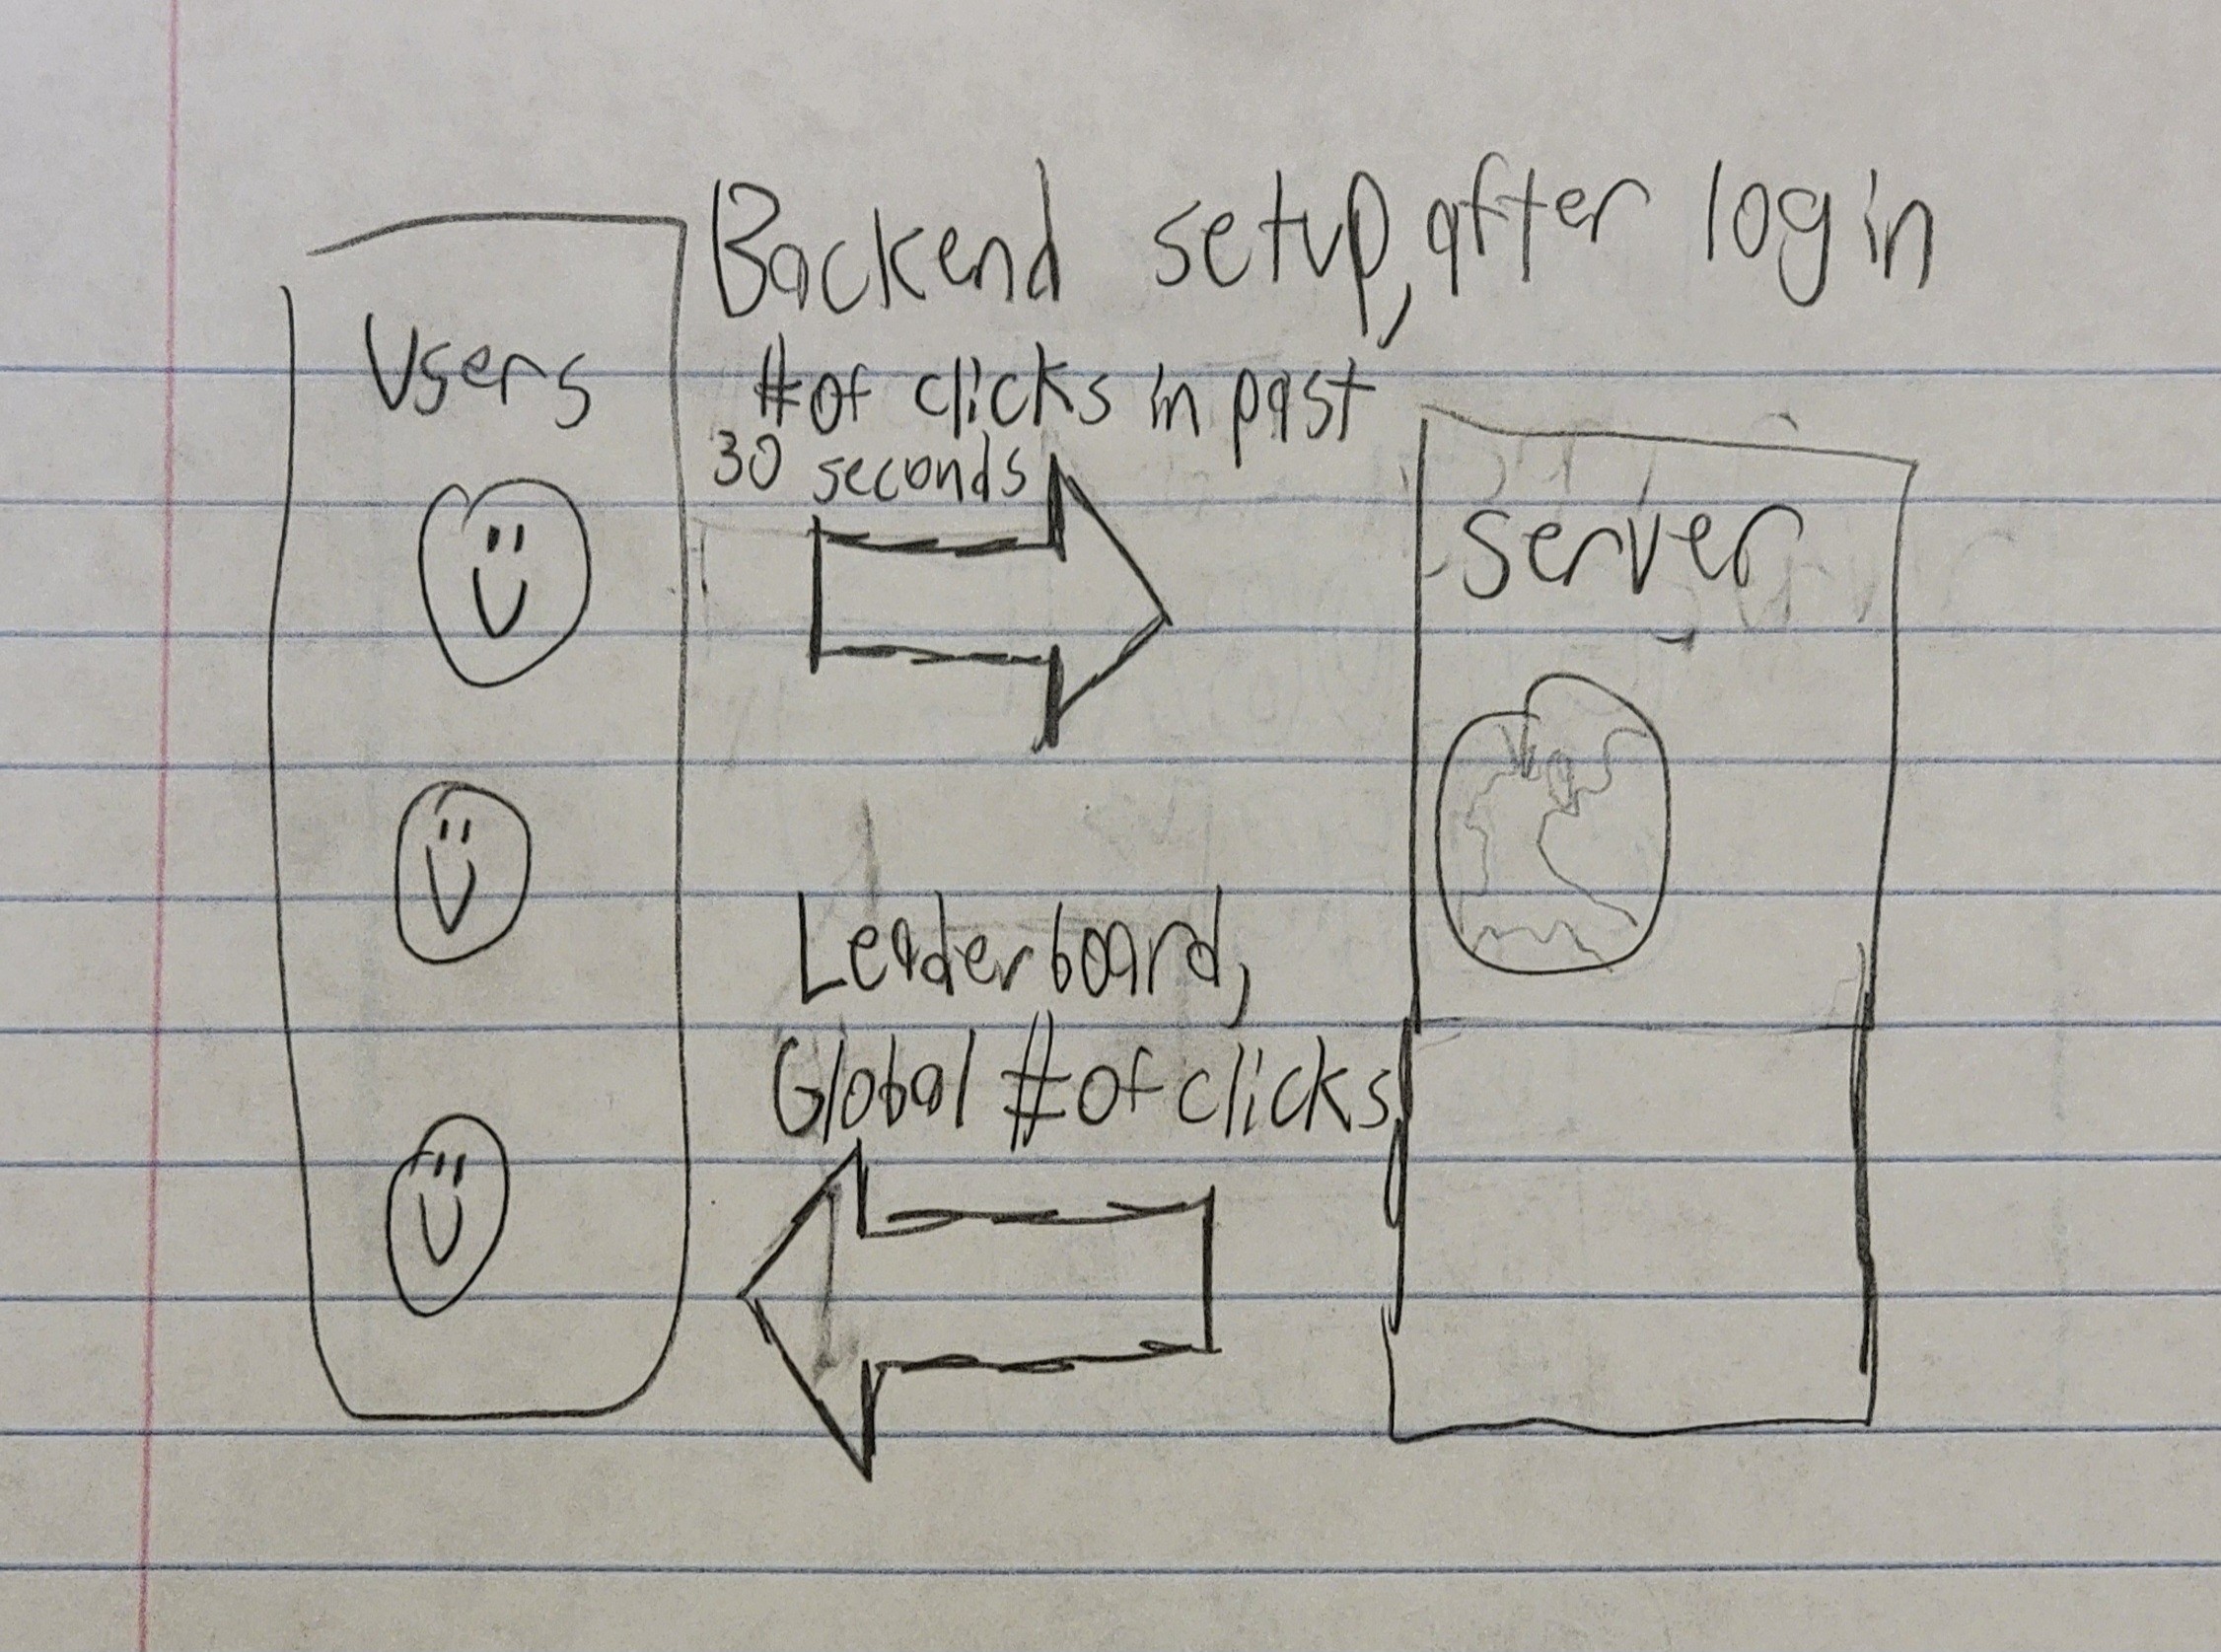 Backend setup, after login
Users
#of clicks in past
30 seconds
server
Leaderboard,
Global #of clicks